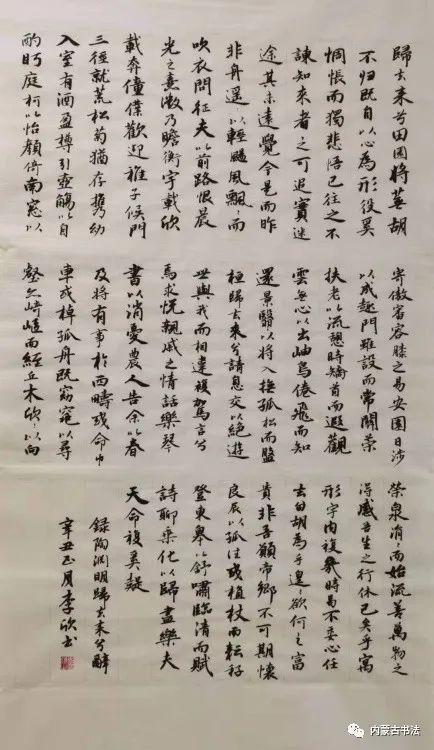 歸去来兮田園将蕪胡
不归既自以心為形役奚
惆悵而獨悲悟已往之不
諫知來者之可追實迷
途其未遠覺今是而昨
非舟遥〻以輕颺風飄〻而
吹衣問征夫以前路恨晨
光之熹微乃瞻衡宇載欣
載奔僮僕歡迎稚子候門
三徑就荒松菊猶存携幼
入室有酒盈樽引壺觴以自
酌眄庭柯以怡顏倚南窓以
寄傲審容膝之易安園日涉
以成趣門雖設而常關策
扶老以流憩時矯首而遐觀
雲無心以出岫鳥倦飛而知
還景翳以將入撫孤松而盤
桓歸去來兮請息交以絕遊
世與我而相違複駕言兮
焉求悦親戚之情話樂琴
書以消憂農人告余以春
及将有事於西疇或命巾
車或棹孤舟既窈窕以尋
壑亦崎嶇而經丘木欣〻以向
榮泉涓〻而始流善萬物之
得感吾生之行休已矣乎寓
形宇内複幾時曷不委心任
去留胡為乎遑〻欲何之富
貴非吾願帝鄉不可期懷
良辰以孤往或植杖而耘籽
登東皋以舒嘯臨清而賦
詩聊乘化以歸盡樂夫
天命複奚疑
録陶渊明歸去来兮辭
辛丑正月李欣书
内蒙古书法